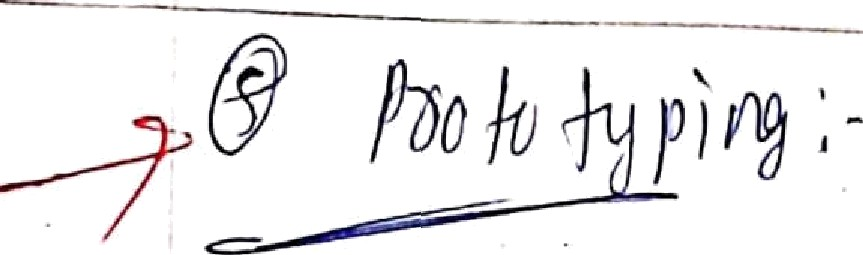 ⑤ Prototyping :-